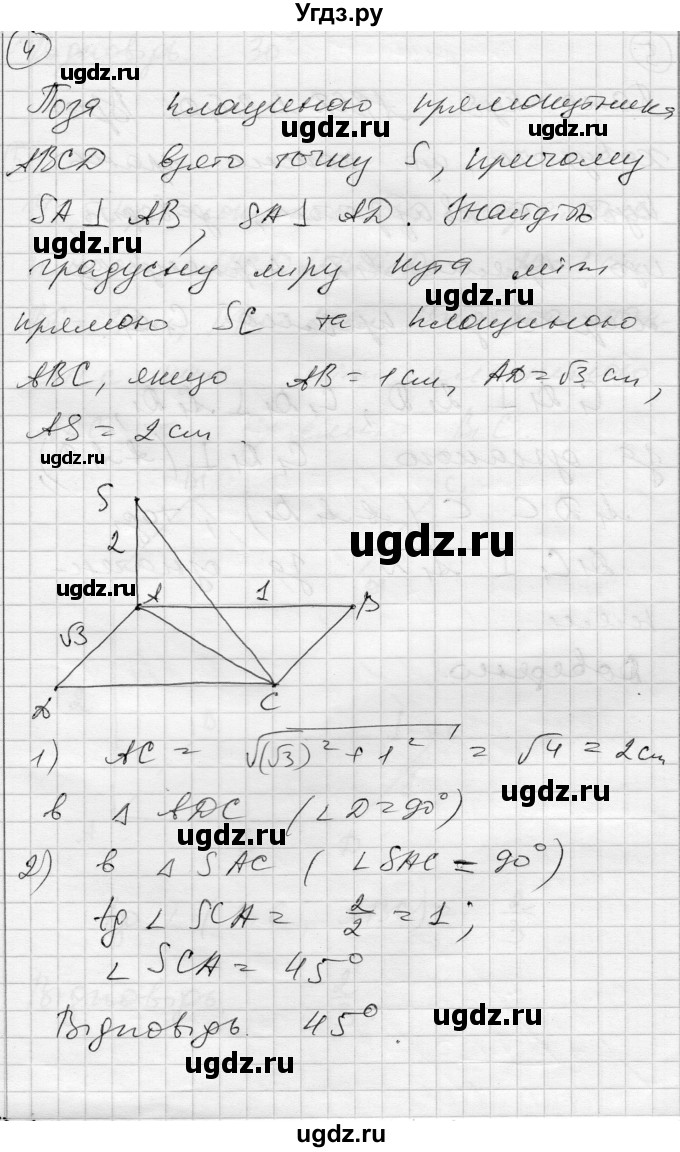 Угдз.ру
4
ugdz.ru
Поза площиною прямокутника
ugdz.ru
ABCD взято точку S, причому
SA ⊥ AB, SA ⊥ AD. Знайдіть
ugdz.ru
градусну міру кута між
ugdz.ru
прямою SC та площиною
ABC, якщо AB = 1 см, AD = √3 см,
ugdz.ru
AS = 2 см.
ugdz.ru
S
2
ugdz.ru
ugdz.ru
A 1 B
√3
D C
1) AC = √((√3)² + 1²) = √4 = 2 см
ugdz.ru
в △ ADC (∠D = 90°)
ugdz.ru
2) в △ SAC (∠SAC = 90°)
tg ∠ SCA = 2/2 = 1;
ugdz.ru
∠ SCA = 45°
Відповідь. 45°.
ugdz.ru
ugdz.ru
ugdz.ru